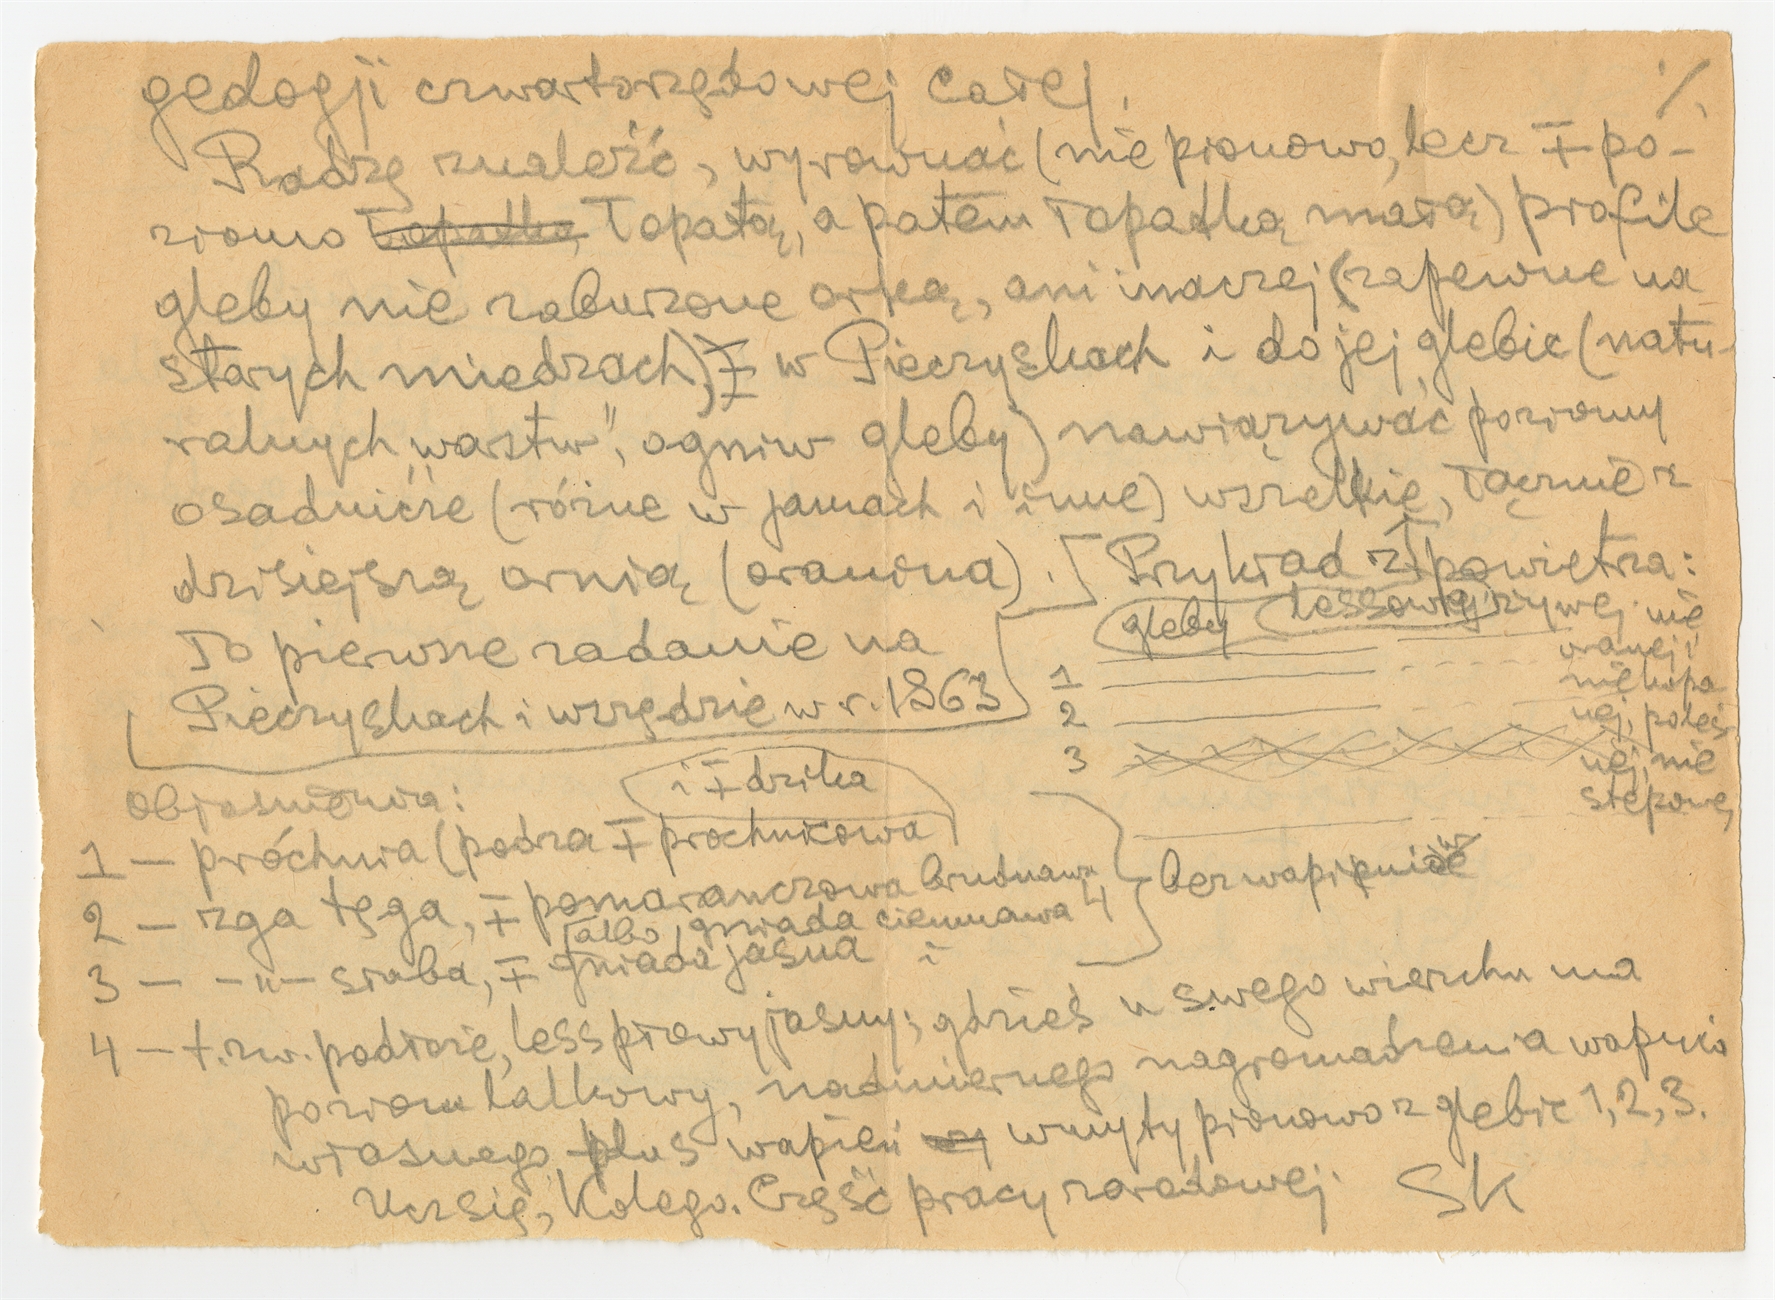 geologji czwartorzędowej całej.
Radzę znaleźć, wyrównać (nie pionowo, lecz ∓ po-
ziomo łopatą, a potem łopatką małą) profile
gleby nie zaburzone orką, ani inaczej (zapewne na
starych miedzach), ∓ w Pieczyskach i do jej glebie (natu-
ralnych „warstw", ogniw gleby) nawiązywać poziomy
osadnicze (różne w jamach i inne) wszelkie, łącznie z
dzisiejszą ornią (oranina).
To pierwsze zadanie na
Pieczyskach i wszędzie w r. 1963
Przykład z powietrza:
gleby lessowej żywej nie
oranej i
niekopa
nej, poleś
nej, nie
stepowej
1
2
3
4
bezwapienie
Objaśnienia:
i ∓ dzika
1 — próchnia (podza ∓ próchnicowa
2 — rga tęga, ∓ pomarańczowa brudnawa
albo gniada ciemnawa
3 — -„- słaba, ∓ gniada jasna i
4 — t.zw. podłoże, less płowy jasny; gdzieś u swego wierzchu ma
poziom lalkowy, nadmiernego nagromadzenia wapnia
własnego plus wapień wmyty pionowo z glebie 1, 2, 3.
Ucz się, Kolego. Cześć pracy zawodowej. SK